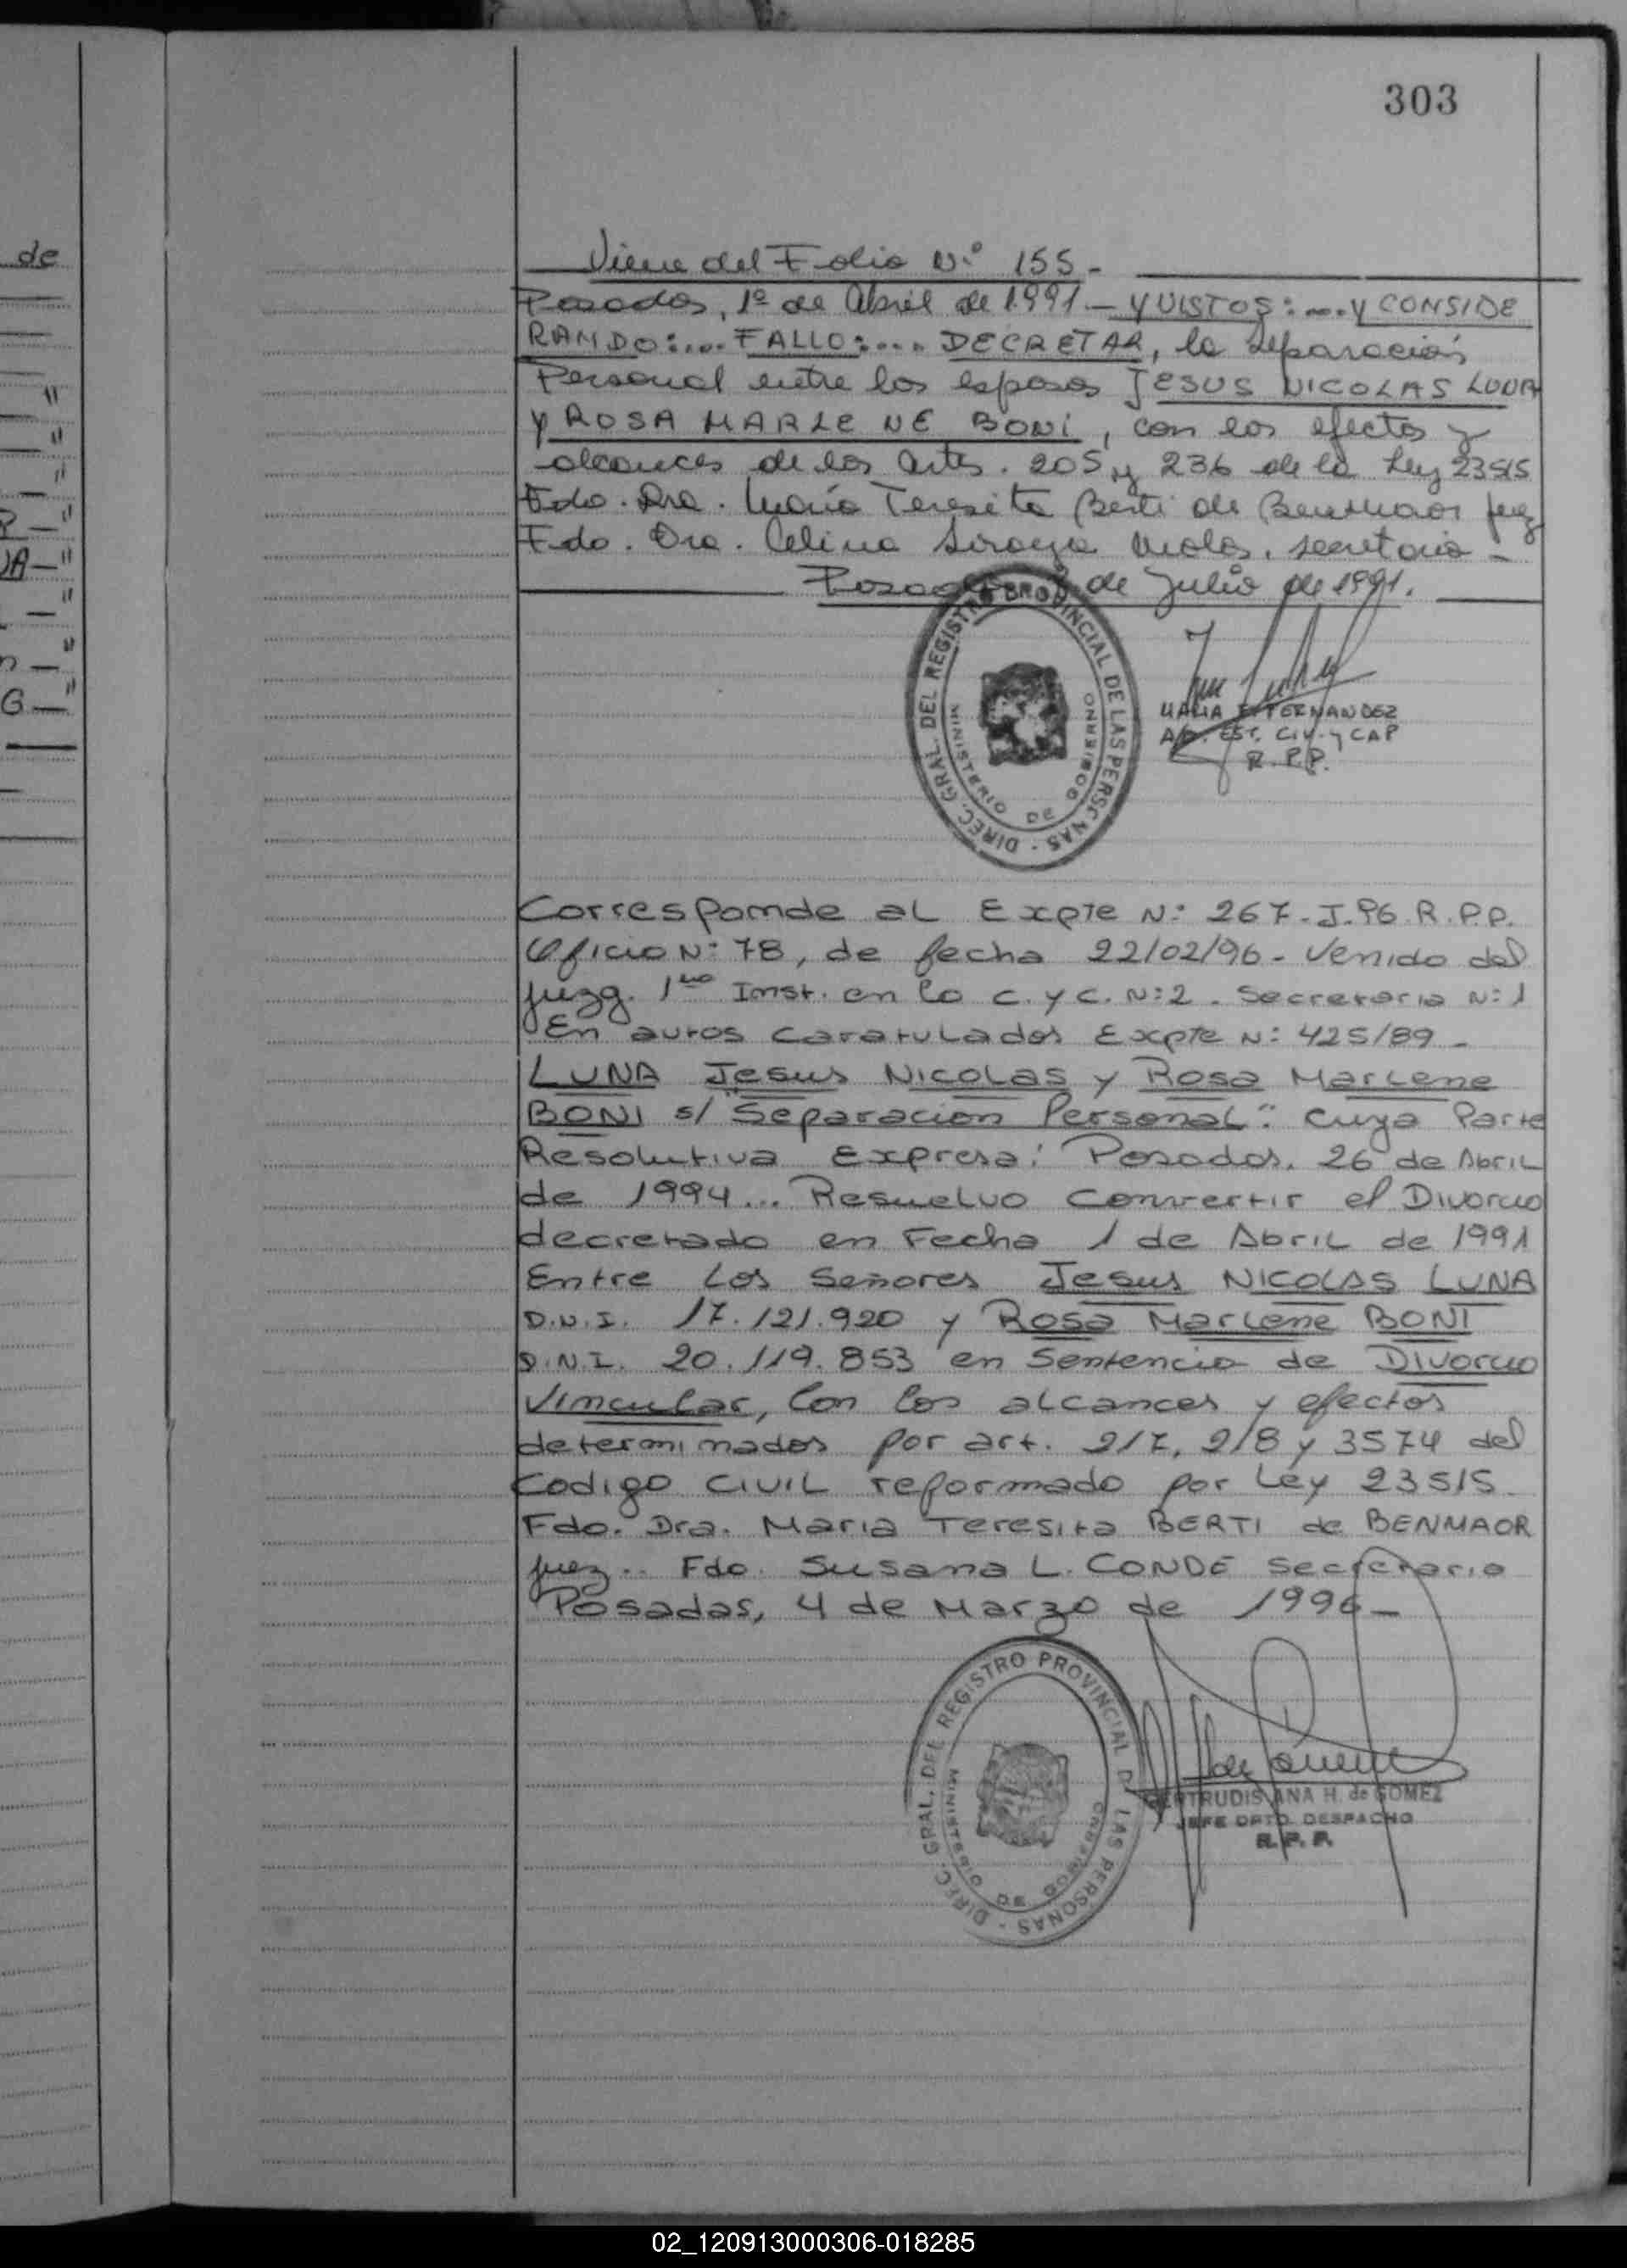 303
de
Viene del Folio N:° 155.-
Posadas, 1º de Abril de 1.991.- Y VISTOS:....Y CONSIDE
RANDO:.... FALLO:.... DECRETAR, la separación
Personal entre los esposos JESUS NICOLAS LUNA
y ROSA MARLE NE BONI, con los efectos y
alcances de los arts. 205 y 236 de la Ley 23515
Fdo. Dra. María Teresita Berti de Benmaor juez
Fdo. Dra. Celina secretaria -
de Julio de 1991.
DIREC. GRAL. DEL REGISTRO PROVINCIAL DE LAS PERSONAS -
MINISTERIO DE GOBIERNO
FERNANDEZ
EST. CIV. y CAP
R.P.P.
Correspomde al Expte N: 267-J-96. R.P.P.
Oficio N: 78, de fecha 22/02/96 - Venido del
juzg. 1ra Inst. en lo C. y C. N:2. Secretaria N: 1
En autos caratulados Expte N: 425/89 -
LUNA Jesus Nicolas y Rosa Marlene
BONI s/ "Separacion Personal": cuya Parte
Resolutiva Expresa: Posadas, 26 de Abril
de 1994... Resuelvo Convertir el Divorcio
decretado en Fecha 1 de Abril de 1991
Entre Los Señores Jesus NICOLAS LUNA
D.N.I. 17.121.920 y Rosa Marlene BONI
D.N.I. 20.119.853 en Sentencia de Divorcio
Vincular, Con los alcances y efectos
determinados por art. 217, 218 y 3574 del
Codigo CIVIL reformado por Ley 23515.
Fdo. Dra. Maria Teresita BERTI de BENMAOR
juez.. Fdo. Susana L. CONDE Secretaria
Posadas, 4 de Marzo de 1996-
DIREC. GRAL. DEL REGISTRO PROVINCIAL D LAS PERSONAS -
MINISTERIO DE GOBIERNO
GERTRUDIS ANA H. de GOMEZ
JEFE DPTO. DESPACHO
R.P.P.
02_120913000306-018285